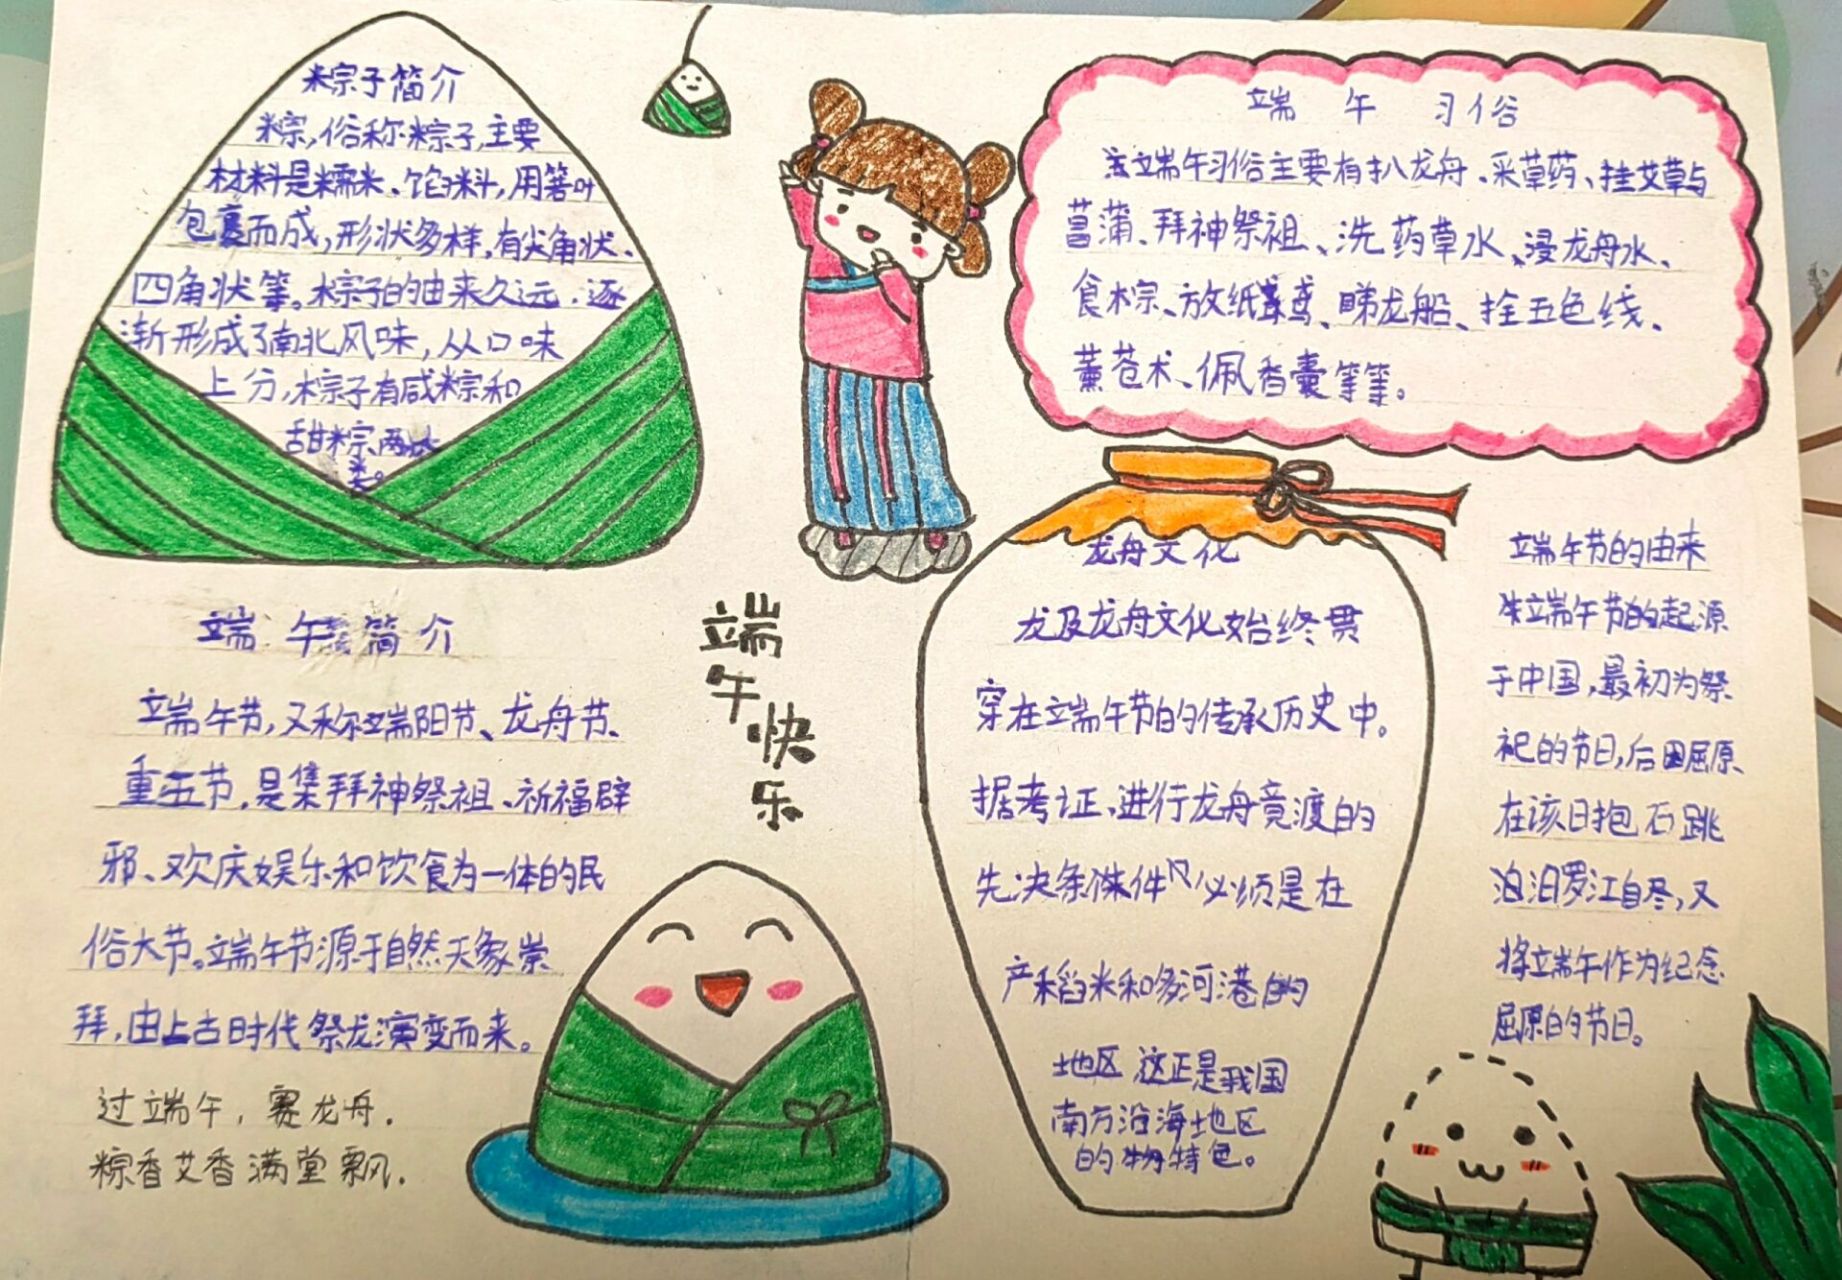 粽子简介
粽,俗称粽子,主要
材料是糯米、馅料,用箬叶
包裹而成,形状多样,有尖角状、
四角状等。粽子的由来久远,逐
渐形成了南北风味,从口味
上分,粽子有咸粽和
甜粽两大
类。
端午习俗
端午习俗主要有扒龙舟、采草药、挂艾草与
菖蒲、拜神祭祖、洗药草水、浸龙舟水、
食粽、放纸鸢、睇龙船、拴五色线、
薰苍术、佩香囊等等。
端午简介
端午节,又称端阳节、龙舟节、
重五节,是集拜神祭祖、祈福辟
邪、欢庆娱乐和饮食为一体的民
俗大节。端午节源于自然天象崇
拜,由上古时代祭龙演变而来。
过端午,赛龙舟.
粽香艾香满堂飘.
端午快乐
龙舟文化
龙及龙舟文化始终贯
穿在端午节的传承历史中。
据考证、进行龙舟竟渡的
先决条件必须是在
产稻米和多河港的
地区 这正是我国
南方沿海地区
的特色。
端午节的由来
端午节的起源
于中国,最初为祭
祀的节日,后因屈原
在该日抱石跳
汨罗江自尽,又
将端午作为纪念
屈原的节日。